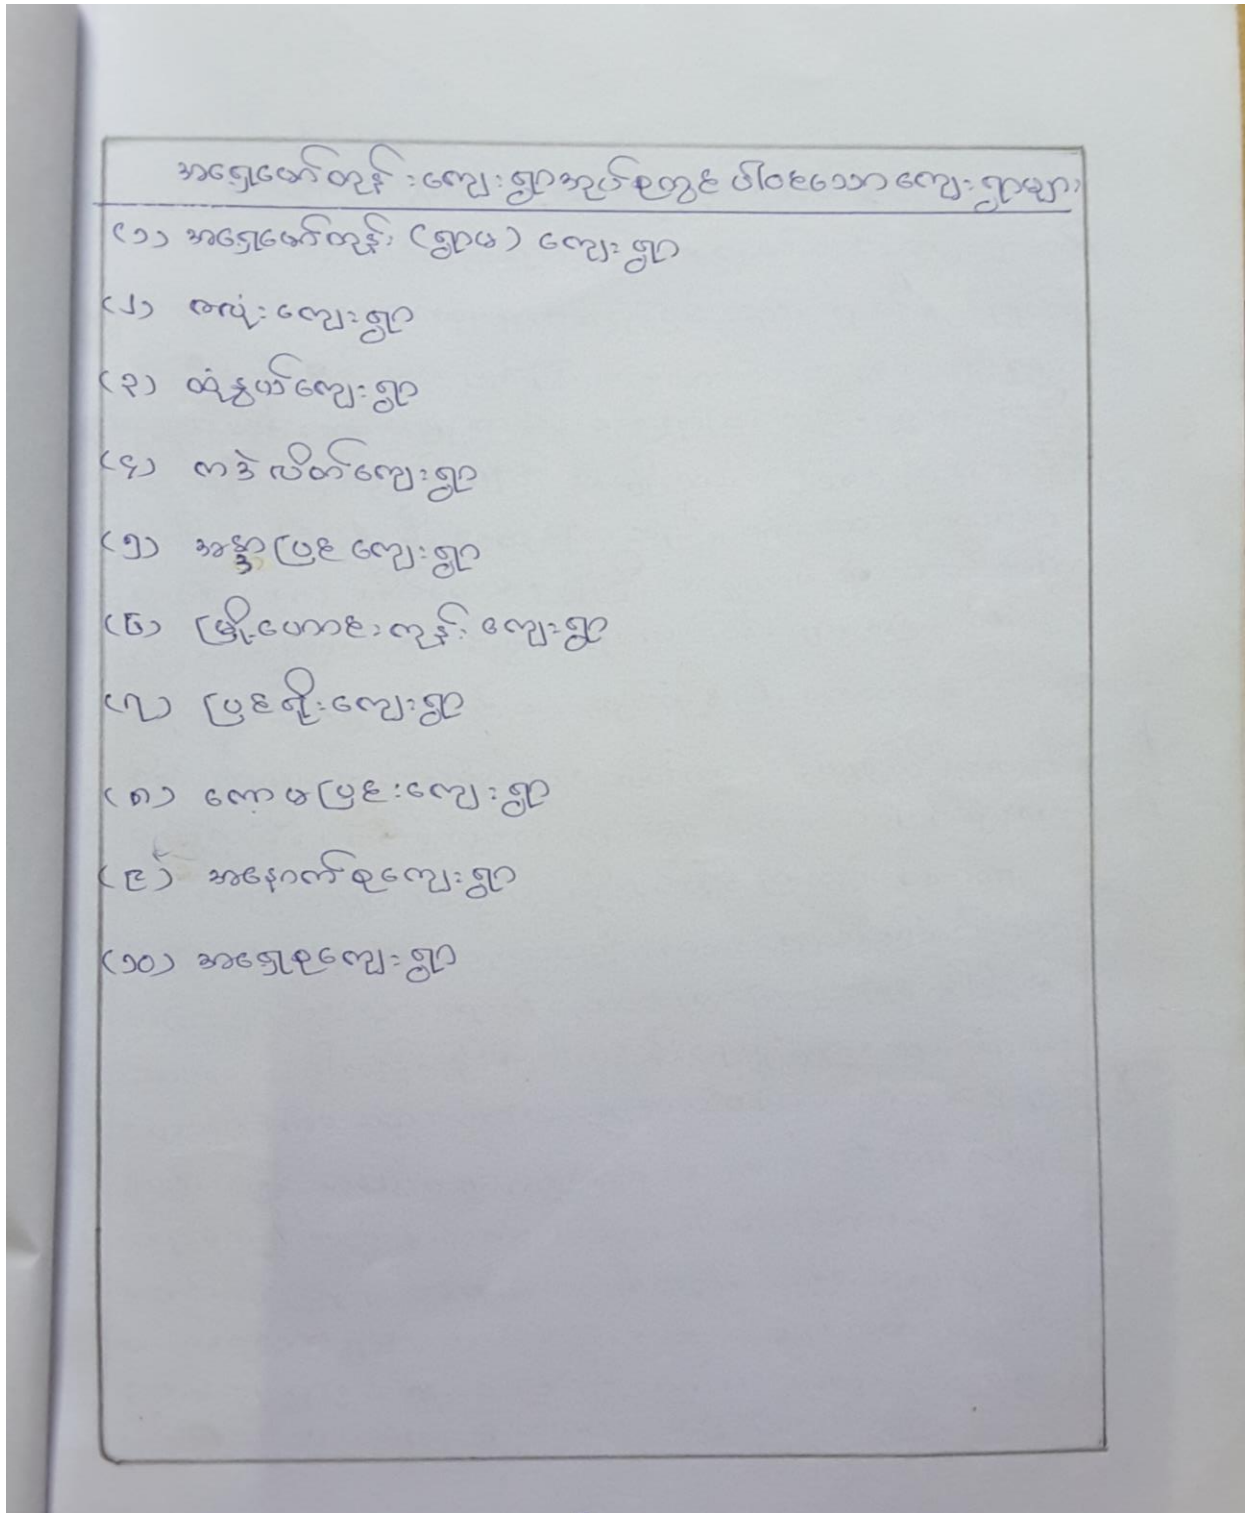 အရှေ့ဖော်တွန်းကျေးရွာအုပ်စုတွင် ပါဝင်သောကျေးရွာများ
(၁) အရှေ့ဖော်တွန်း (ရွာမ) ကျေးရွာ
(၂) ကျေးရွာ
(၃) ထုံနွယ်ကျေးရွာ
(၄) ကဒဲလိတ်ကျေးရွာ
(၅) ကျေးရွာ
(၆) မြို့ဟောင်းကုန်းကျေးရွာ
(၇) ပြင်ရိုးကျေးရွာ
(၈) ကော့မပြင်းကျေးရွာ
(၉) အနောက်စုကျေးရွာ
(၁၀) အရှေ့စုကျေးရွာ